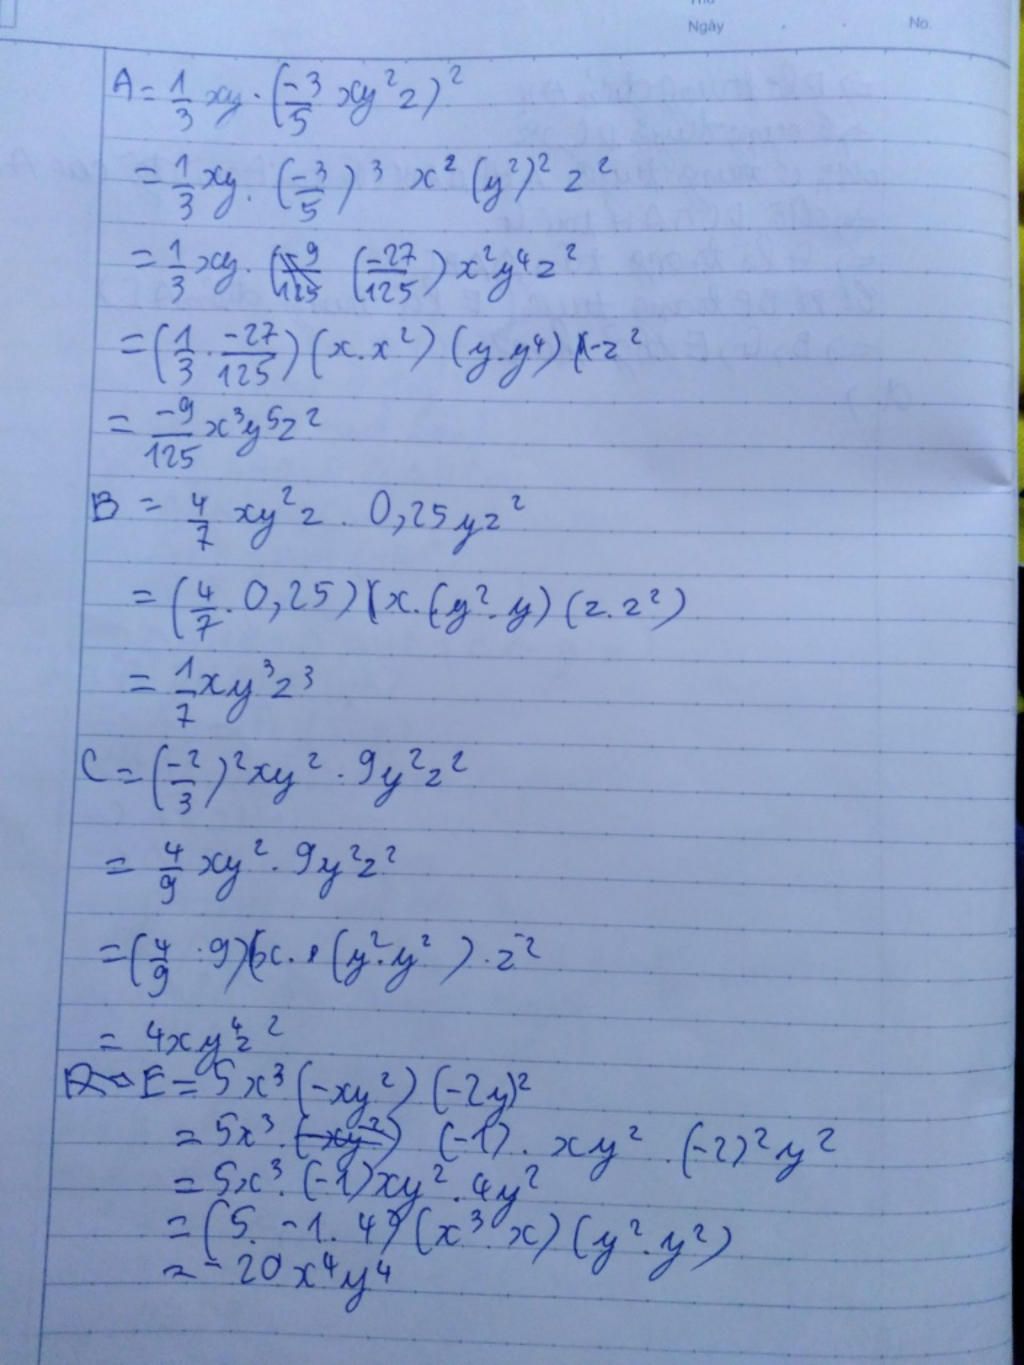 Thứ
Ngày . . No.
A = 1/3 xy . (-3/5 xy²z)²
= 1/3 xy . (-3/5)³ x² (y²)² z²
= 1/3 xy . (-9/125 (-27/125) x²y⁴z²
= (1/3 . -27/125) (x.x²) (y.y⁴) . z²
= -9/125 x³y⁵z²
B = 4/7 xy²z . 0,25yz²
= (4/7 . 0,25) (x.(y².y) (z.z²)
= 1/7 xy³z³
C = (-2/3)² xy² . 9y²z²
= 4/9 xy² . 9y²z²
= (4/9 . 9)(x. (y².y²) . z²
= 4xy⁴z²
E = 5x³ (-xy²) (-2y)²
= 5x³ . (-xy²) (-1) . xy² . (-2)²y²
= 5x³ . (-1)xy² . 4y²
= (5. -1. 4) (x³ x) (y².y²)
= -20x⁴y⁴